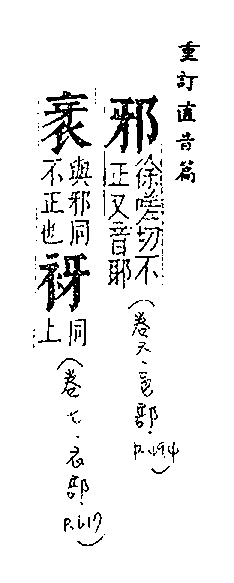 重訂直音篇
邪徐嗟切不
正又音耶
(卷·邑部·P.494)
衺與邪同
不正也
䘪同
上
(卷七·衣部·P.617)